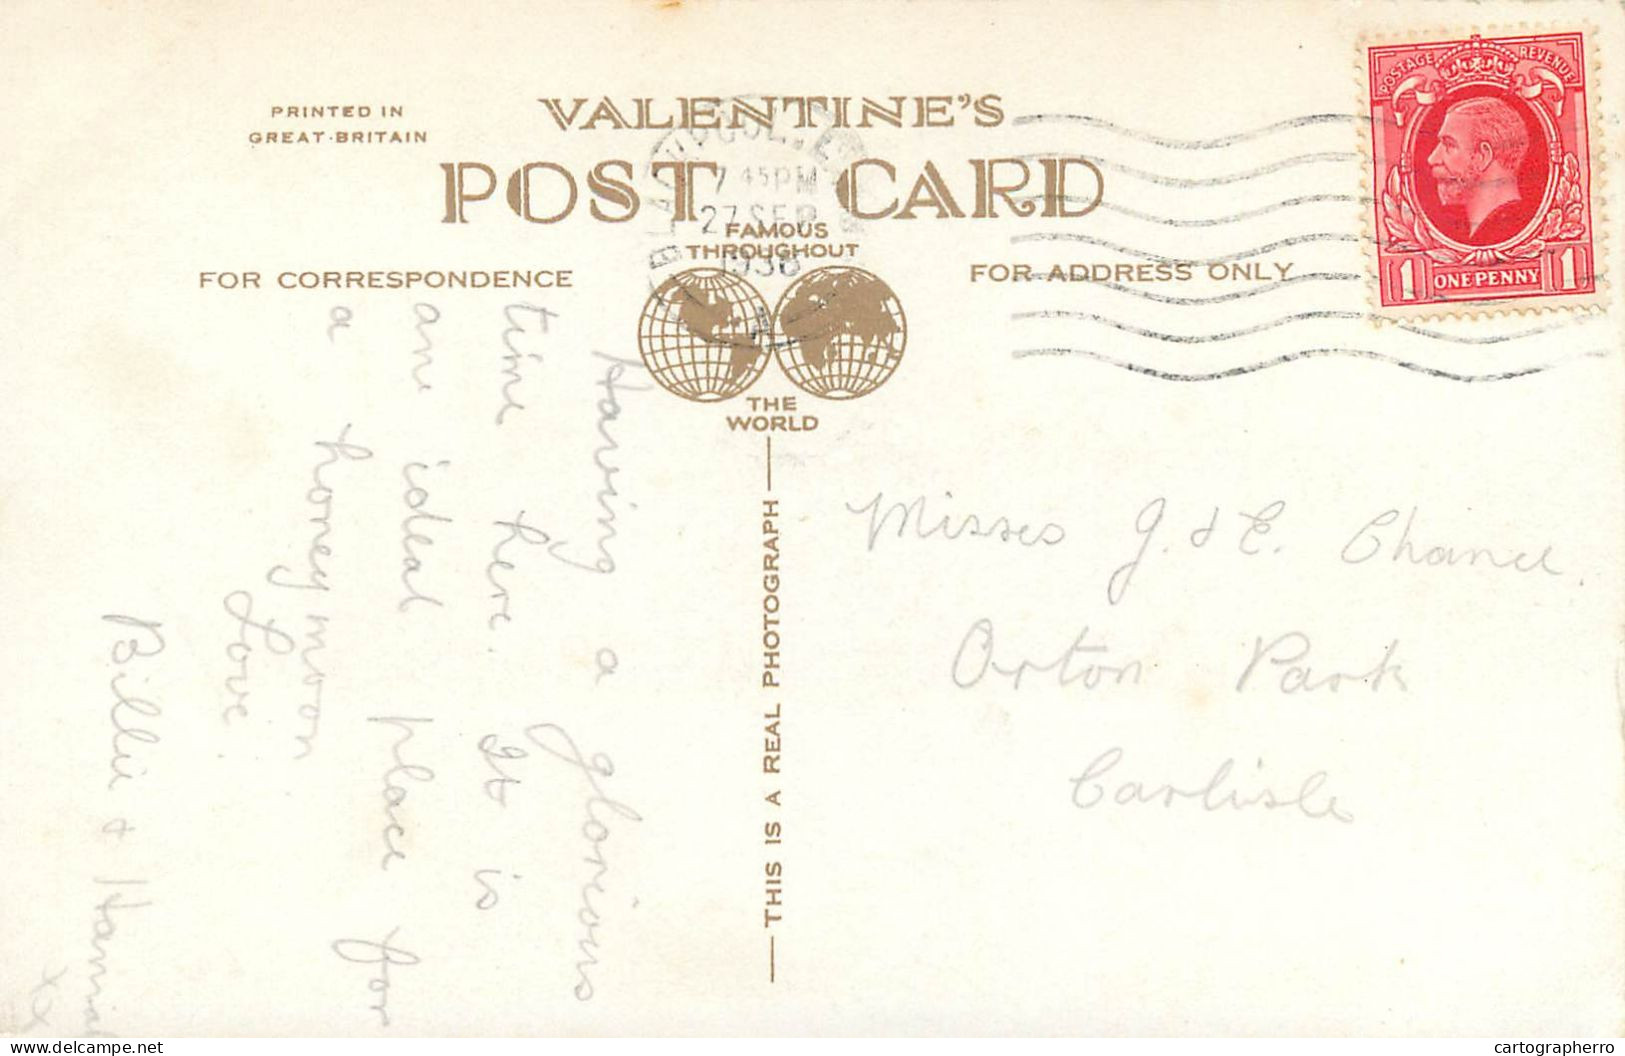 PRINTED IN
GREAT·BRITAIN
VALENTINE'S
POST CARD
FAMOUS
THROUGHOUT
THE
WORLD
FOR CORRESPONDENCE
FOR ADDRESS ONLY
BLACKPOOL
7 45 PM
27 SEP
1936
POSTAGE REVENUE
1 ONE PENNY 1
THIS IS A REAL PHOTOGRAPH
Having a glorious
time here. It is
an ideal place for
a honeymoon
Love
Billie &
xx
Misses J. & E. Chance.
Orton Park
Carlisle
cartographerro
delcampe.net